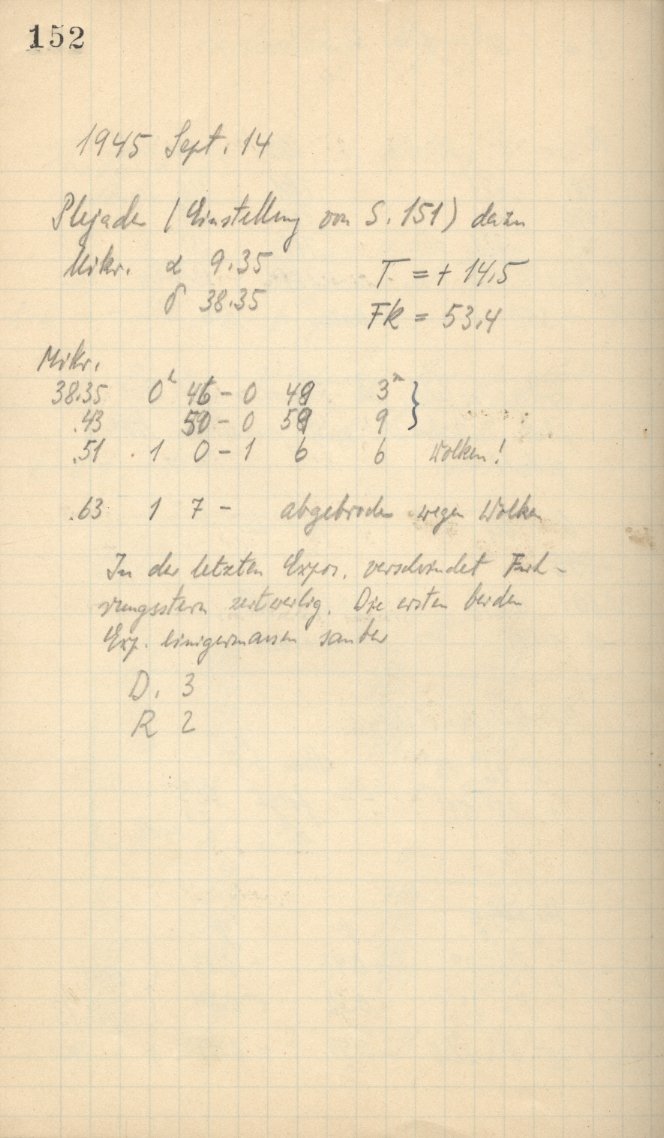 152
1945 Sept. 14
Plejaden (Einstellung von S. 151) dazu
Mikr. α 9.35 T = + 14,5
δ 38.35 FK = 53,4
Mikr.
38.35 0h 46 - 0 49 3m }
.43 50 - 0 59 9
.51 1 0 - 1 6 6 Wolken!
.63 1 7 - abgebrochen wegen Wolken
In der letzten Expos. verschwindet Füh-
rungsstern zeitweilig. Die ersten beiden
Exp. einigermassen sauber
D. 3
R 2